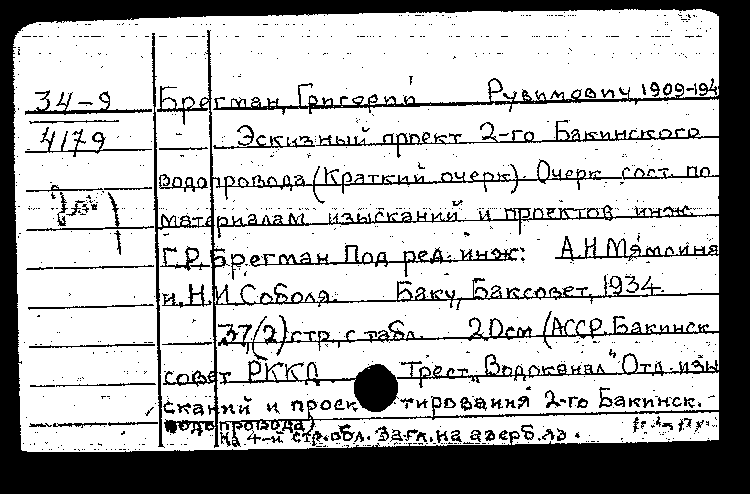 34-9
4179
Брегман, Григорий Рувимович, 1909-194
Эскизный проект 2-го Бакинского
водопровода (Краткий очерк). Очерк сост. по
материалам изысканий и проектов инж.
Г.Р. Брегман. Под ред. инж: А.Н. Мямлина
и Н.И. Соболя. Баку, Баксовет, 1934.
37, (2) стр., с табл. 20см (АССР. Бакинск
совет РККД Трест „Водоканал" Отд. изы
сканий и проектирования 2-го Бакинск.
водопровода)
На 4-й стр. обл. Загл. на азерб. яз.